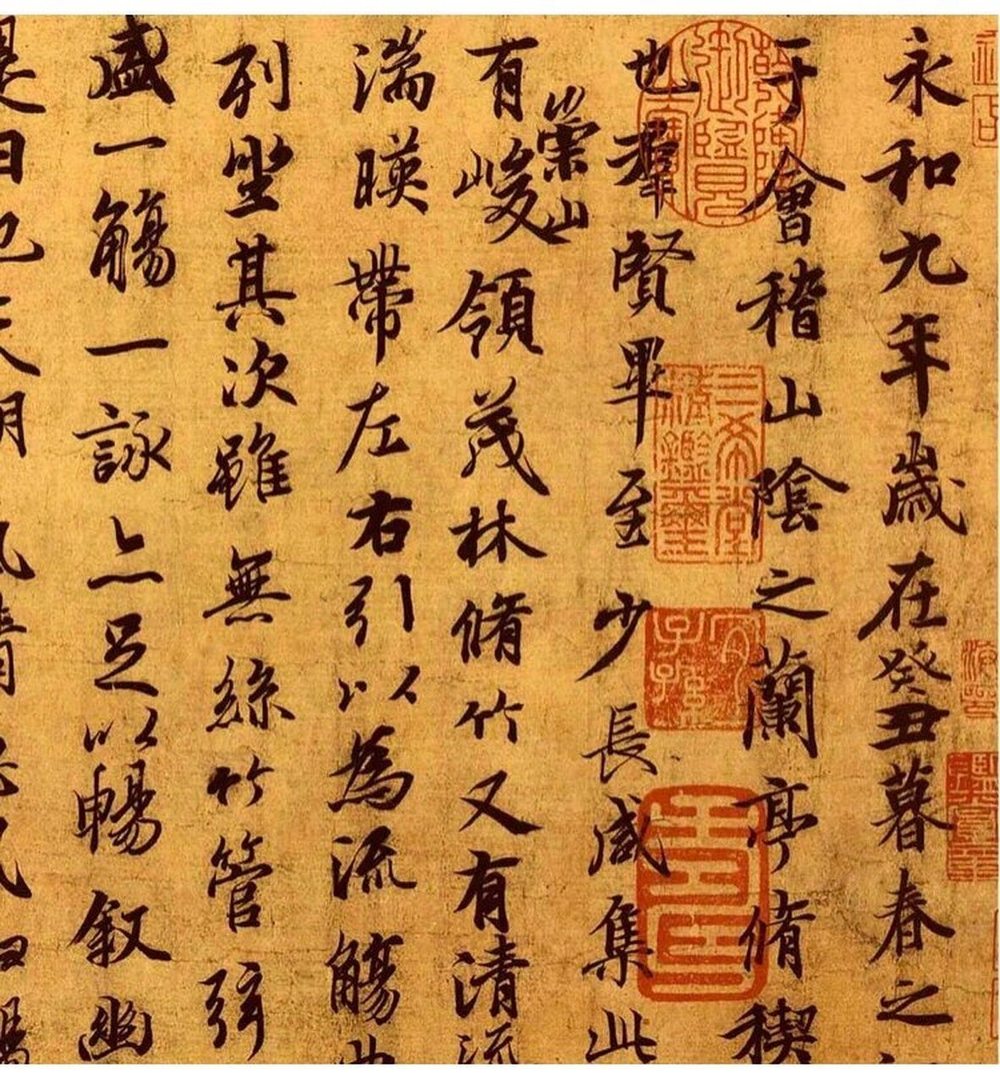 永和九年歲在癸丑暮春之
于會稽山陰之蘭亭脩禊
也羣賢畢至少長咸集此
有崇山峻領茂林脩竹又有清流
湍暎帶左右引以為流觴
列坐其次雖無絲竹管弦
盛一觴一詠亦足以暢叙幽
是日也天
三希堂精鑑璽
宜子孫